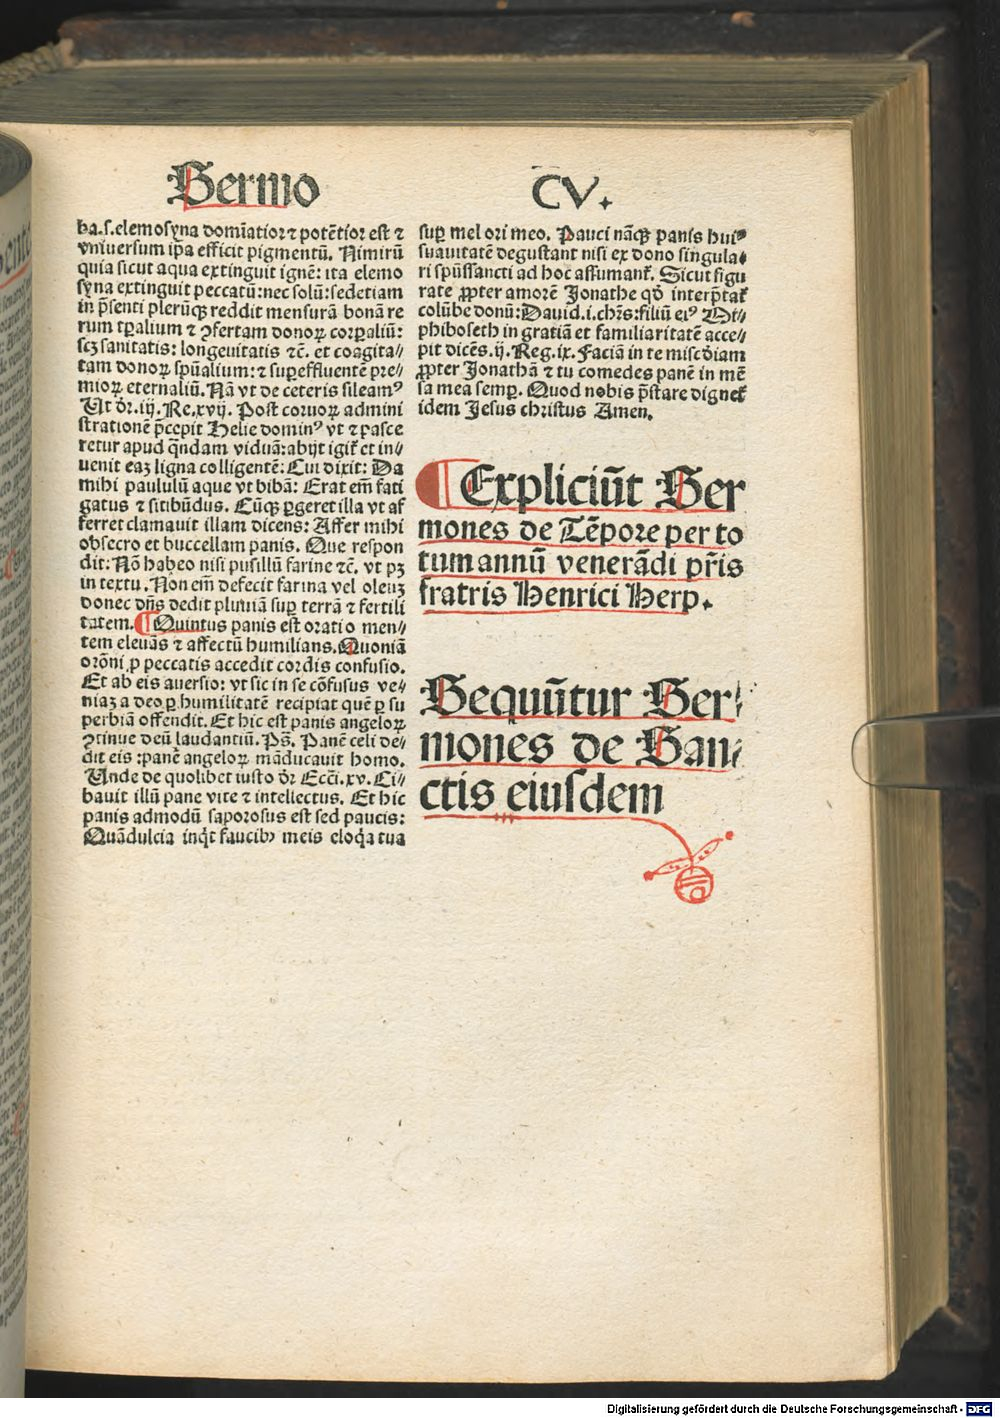 Sermo CV.
ba.s.elemosyna domīatior ⁊ potētior est ⁊
vniuersum ip̄a efficit pigmentū. Nimirū
quia sicut aqua extinguit ignē: ita elemo
syna extinguit peccatū: nec solū: sed etiam
in p̄senti plerūqꝫ reddit mensurā bonā re
rum tꝑalium ⁊ ꝯfertam donoꝝ corꝑaliū:
scꝫ sanitatis: longeuitatis ⁊c̄. et coagita//
tam donoꝝ spūalium: ⁊ suꝑeffluentē pre//
mioꝝ eternaliū. Nā vt de ceteris sileamꝰ
Ut dr̄.iij. Re.xvij. Post coruoꝝ admini
strationē p̄cepit Helie dominꝰ vt ⁊ pasce
retur apud q̄ndam viduā: abijt igit᷑ et in//
uenit eaꝫ ligna colligentē: Cui dixit: Da
mihi paululū aque vt bibā: Erat em̄ fati
gatus ⁊ sitibūdus. Cūqꝫ ꝑgeret illa vt af
ferret clamauit illam dicens: Affer mihi
obsecro et buccellam panis. Que respon
dit: Nō habeo nisi pusillū farine ⁊c̄. vt pꝫ
in textu. Non em̄ defecit farina vel oleuꝫ
donec dn̄s dedit pluuiā suꝑ terrā ⁊ fertili
tatem. ¶ Quintus panis est oratio men//
tem eleuās ⁊ affectū humilians. Quoniā
orōni ꝓ peccatis accedit cordis confusio.
Et ab eis auersio: vt sic in se cōfusus ve//
niaꝫ a deo ꝑ humilitatē recipiat quē ꝑ su
perbiā offendit. Et hic est panis angeloꝝ
ꝯtinue deū laudantiū. Ps̄. Panē celi de//
dit eis: panē angeloꝝ māducauit homo.
Unde de quolibet iusto dr̄ Eccī.xv. Ci//
bauit illū pane vite ⁊ intellectus. Et hic
panis admodū saporosus est sed paucis:
Quā dulcia inqͥt faucibꝰ meis eloqͥa tua
suꝑ mel ori meo. Pauci nāqꝫ panis huiꝰ
suauitatē degustant nisi ex dono singula//
ri spūssancti ad hoc assumant᷑. Sicut figu
rate ꝓpter amorē Jonathe qd̄ interp̄tat᷑
colūbe donū: Dauid.i.chr̄s: filiū eiꝰ Mi//
phiboseth in gratiā et familiaritatē acce//
pit dicēs.ij. Reg.ix. Faciā in te misc̄diam
ꝓpter Jonathā ⁊ tu comedes panē in mē
sa mea semꝑ. Quod nobis p̄stare dignet᷑
idem Jesus christus Amen.
¶ Expliciūt Ser
mones de Tēpore per to
tum annū venerādi pr̄is
fratris Henrici Herp.
Sequūtur Ser//
mones de San//
ctis eiusdem
Digitalisierung gefördert durch die Deutsche Forschungsgemeinschaft - DFG